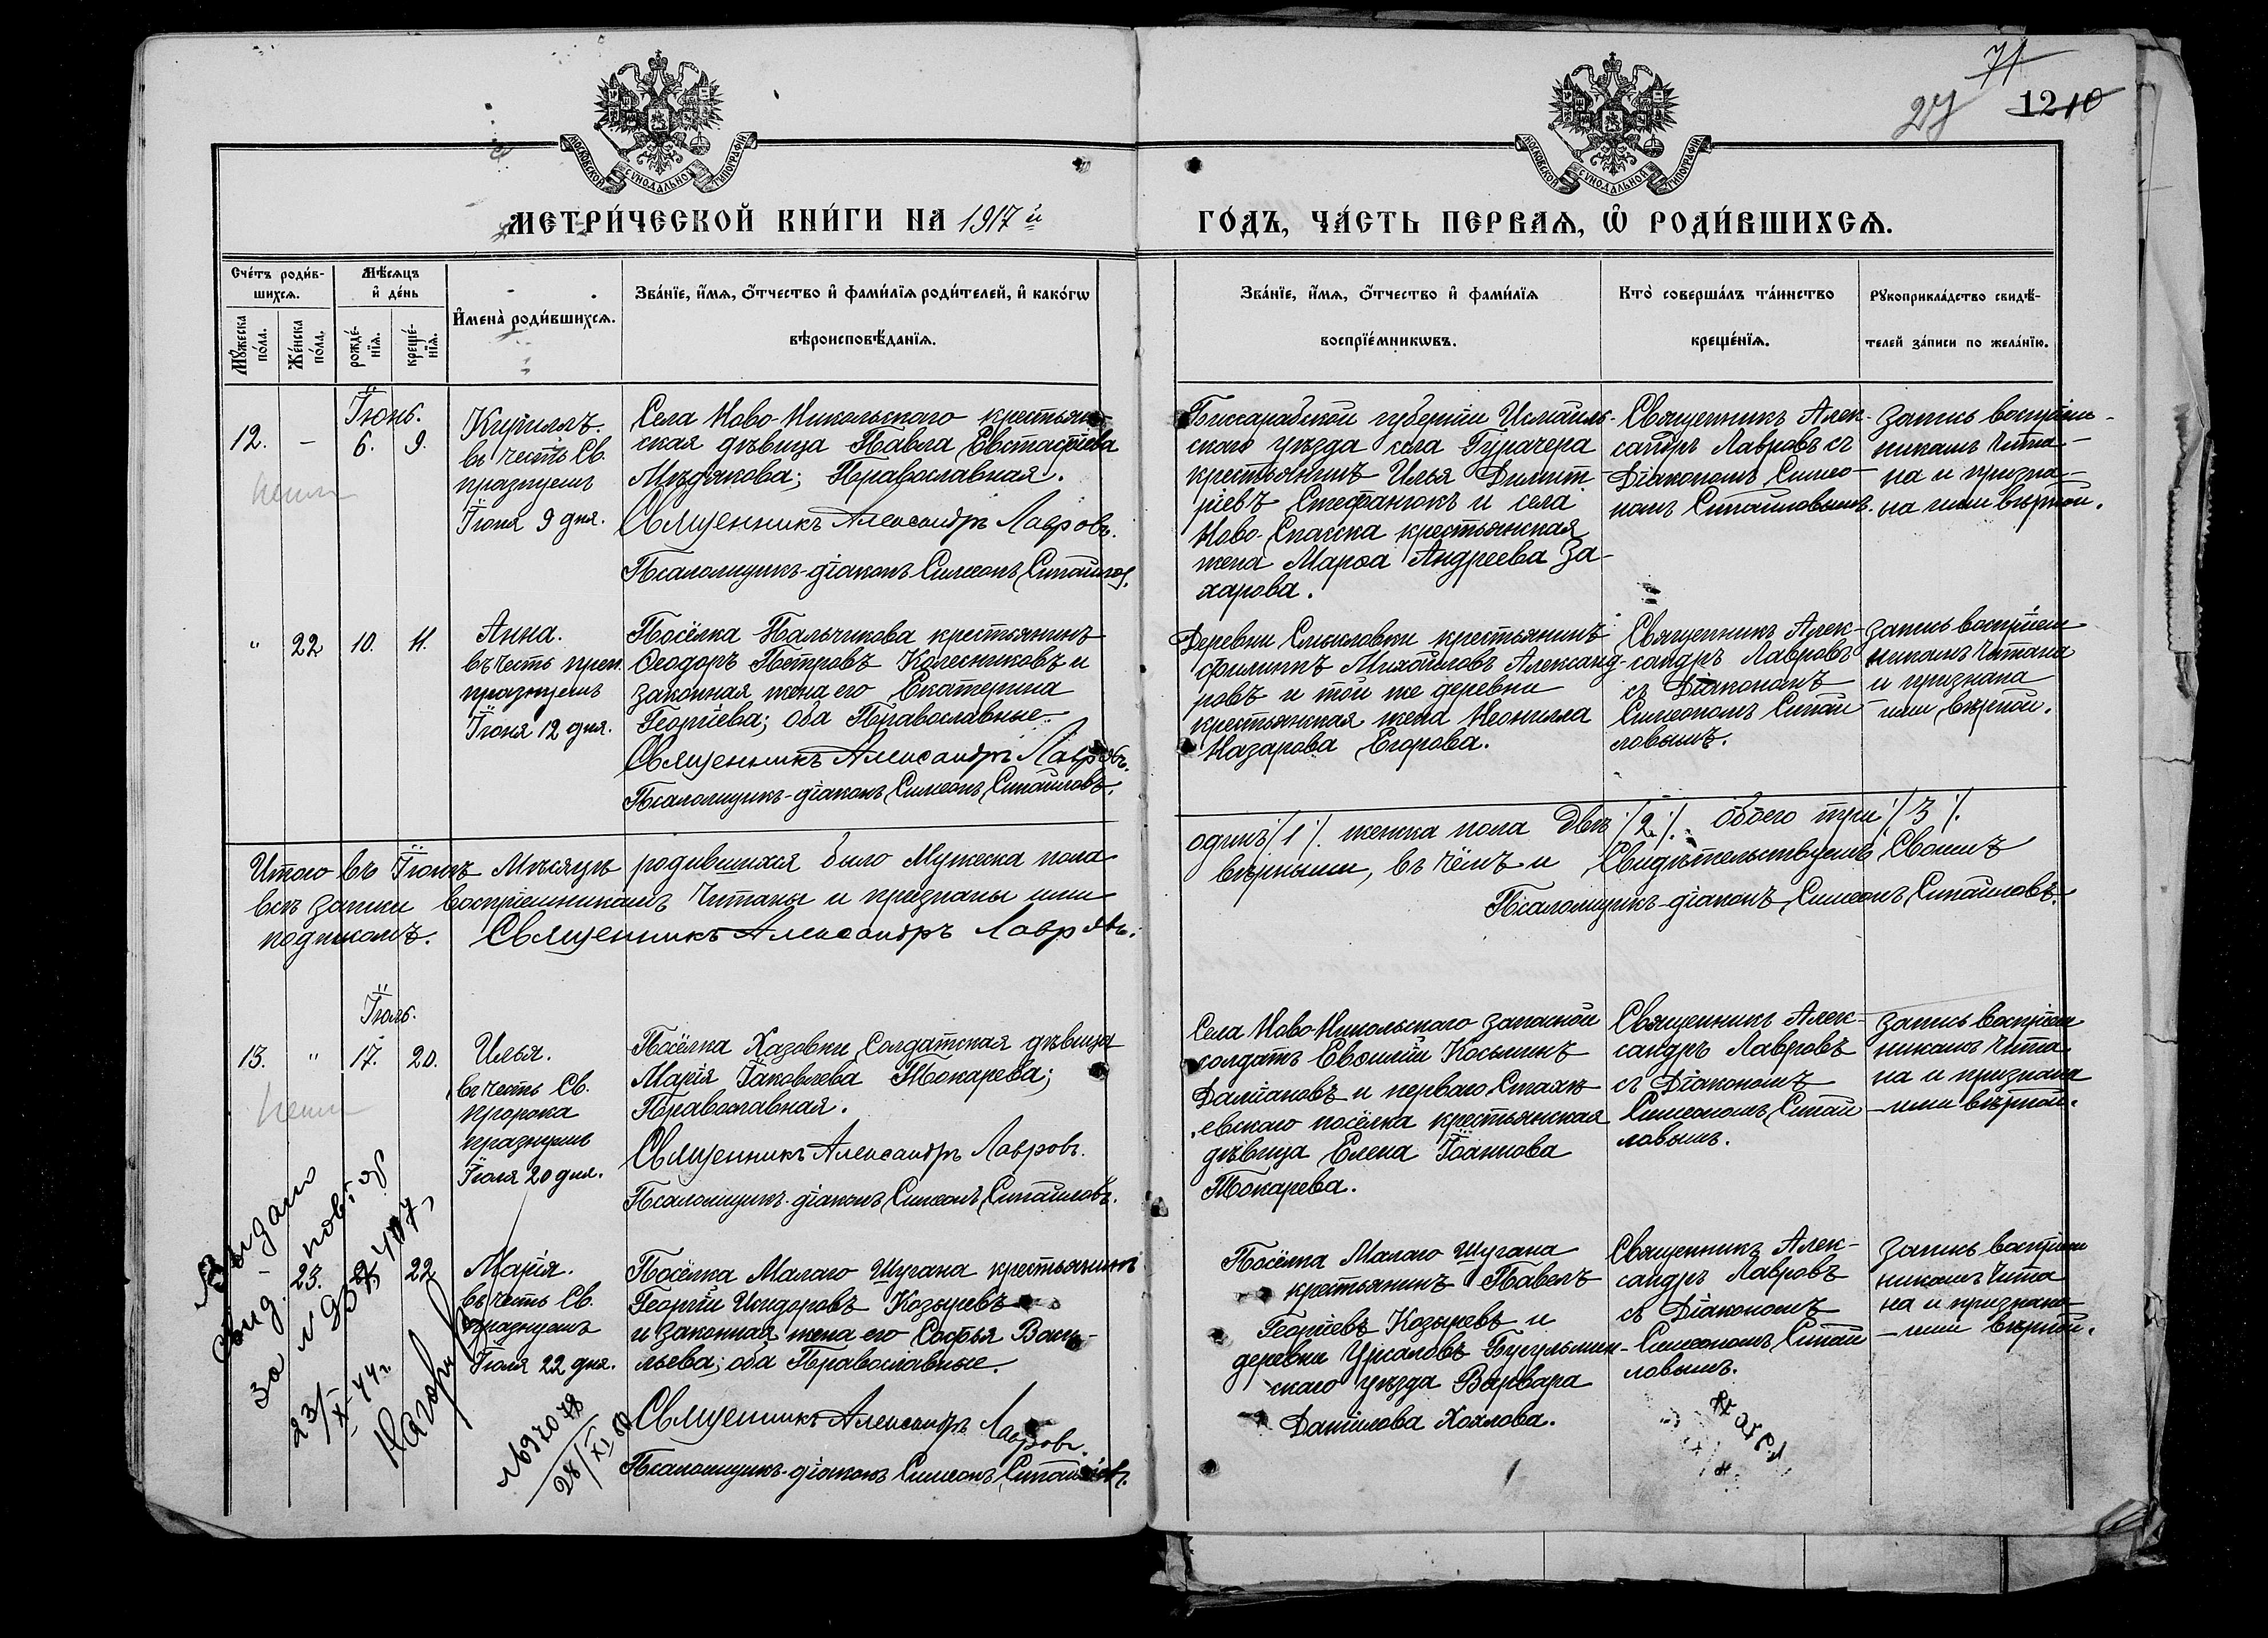 71
27 1210
МОСКОВСКОЙ СѴНОДАЛЬНОЙ ТИПОГРАФІИ
МОСКОВСКОЙ СѴНОДАЛЬНОЙ ТИПОГРАФІИ
МЕТРИ́ЧЕСКОЙ КНИ́ГИ НА 1917 й
ГО́ДЪ, ЧА́СТЬ ПЕ́РВАѦ, Ѡ҆ РОДИ́ВШИХСѦ.
Сче́тъ роди́в-
шихсѧ.
Мꙋ́жеска по́ла.
Же́нска по́ла.
Мѣ́сѧцъ
и҆ де́нь
рожде́-
нїѧ.
креще́-
нїѧ.
И҆мена̀ роди́вшихсѧ.
Зва́нїе, и҆́мѧ, ѻ҆́тчество и҆ фами́лїѧ роди́телей, и҆ како́гѡ
вѣроисповѣ́данїѧ.
Зва́нїе, и҆́мѧ, ѻ҆́тчество и҆ фами́лїѧ
воспрїе́мникѡвъ.
Кто̀ соверша́лъ та́инство
креще́нїѧ.
Рꙋкоприкла́дство свидѣ́-
телей за́писи по жела́нїю.
Іюнь.
12. – 6. 9.
Кириллъ.
въ честь Св.
празнуемъ
Іюня 9 дня.
Села Ново-Никольского крестьян
ская дѣвица Павла Евстафіева
Мѣдякова; Православная.
Священникъ Александръ Лавровъ.
Псаломщикъ-діаконъ Симеонъ Сипайлов.
Бессарабской губерніи Исмаиль-
ского уѣзда села Гурачера
крестьянинъ Илья Димит
ріевъ Стефанюкъ и села
Ново-Спасска крестьянская
жена Марѳа Андреева За-
харова.
Священникъ Алек-
сандръ Лавровъ съ
Діакономъ Симео-
номъ Сипайловымъ.
Запись воспріем-
никамъ чита-
на и призна-
на ими вѣрной.
" 22 10. 11.
Анна.
въ честь преп.
празнуемъ
Іюня 12 дня.
Посёлка Пальчикова крестьянинъ
Ѳеодоръ Петровъ Колесниковъ и
законная жена его Екатерина
Георгіева; оба Православные.
Священникъ Александръ Лавровъ.
Псаломщикъ-діаконъ Симеонъ Сипайловъ.
Деревни Смысловки крестьянинъ
Филиппъ Михайловъ Александ-
ровъ и той же деревни
крестьянская жена Неонилла
Назарова Егорова.
Священникъ Алек-
сандръ Лавровъ
съ Діакономъ
Симеономъ Сипай
ловымъ.
Запись воспріем
никамъ читана
и признана
ими вѣрной.
Итого въ Іюнѣ Мѣсяцѣ родившихся было Мужеска пола
одинъ /1/. женска пола двѣ /2/. обоего три /3/.
всѣ записи воспріемникамъ читаны и признаны ими
вѣрными, въ чёмъ и Свидѣтельствуемъ Своимъ
подписомъ. Священникъ Александръ Лавровъ.
Псаломщикъ-діаконъ Симеонъ Сипайловъ.
Іюль.
13. " 17. 20.
Илья.
въ честь Св.
пророка
празнуем
Іюля 20 дня.
Посёлка Хазовки Солдатская дѣвица
Марія Іаковлева Токарева;
Православная.
Священникъ Александръ Лавровъ.
Псаломщикъ-діаконъ Симеонъ Сипайловъ.
Села Ново-Никольскаго запасной
солдатъ Евѳимій Косьминъ
Даміановъ и перваго
евскаго посёлка крестьянская
дѣвица Елена Іоаннова
Токарева.
Священникъ Алек-
сандръ Лавровъ
съ Діакономъ
Симеономъ Сипай
ловымъ.
Запись воспріем
никамъ чита
на и признана
ими вѣрной.
23. 22
Марія.
въ честь Св.
празнуемъ
Іюля 22 дня.
Посёлка Малаго Шугана крестьянинъ
Георгій Исидоровъ Козыревъ
и законная жена его Софья Васи-
льева; оба Православные.
Священникъ Александръ Лавровъ.
Псаломщикъ-діаконъ Симеонъ Сипайловъ.
Посёлка Малаго Шугана
крестьянинъ Павелъ
Георгіевъ Козыревъ и
деревни Урсаловъ Бугульмин-
скаго уѣзда Варвара
Данилова Хохлова.
Священникъ Алек-
сандръ Лавровъ
съ Діакономъ
Симеономъ Сипай
ловымъ.
Запись воспріем
никамъ чита
на и признана
ими вѣрной.
Выдано
23/X-44 г.
№ 937078
28/XI 80